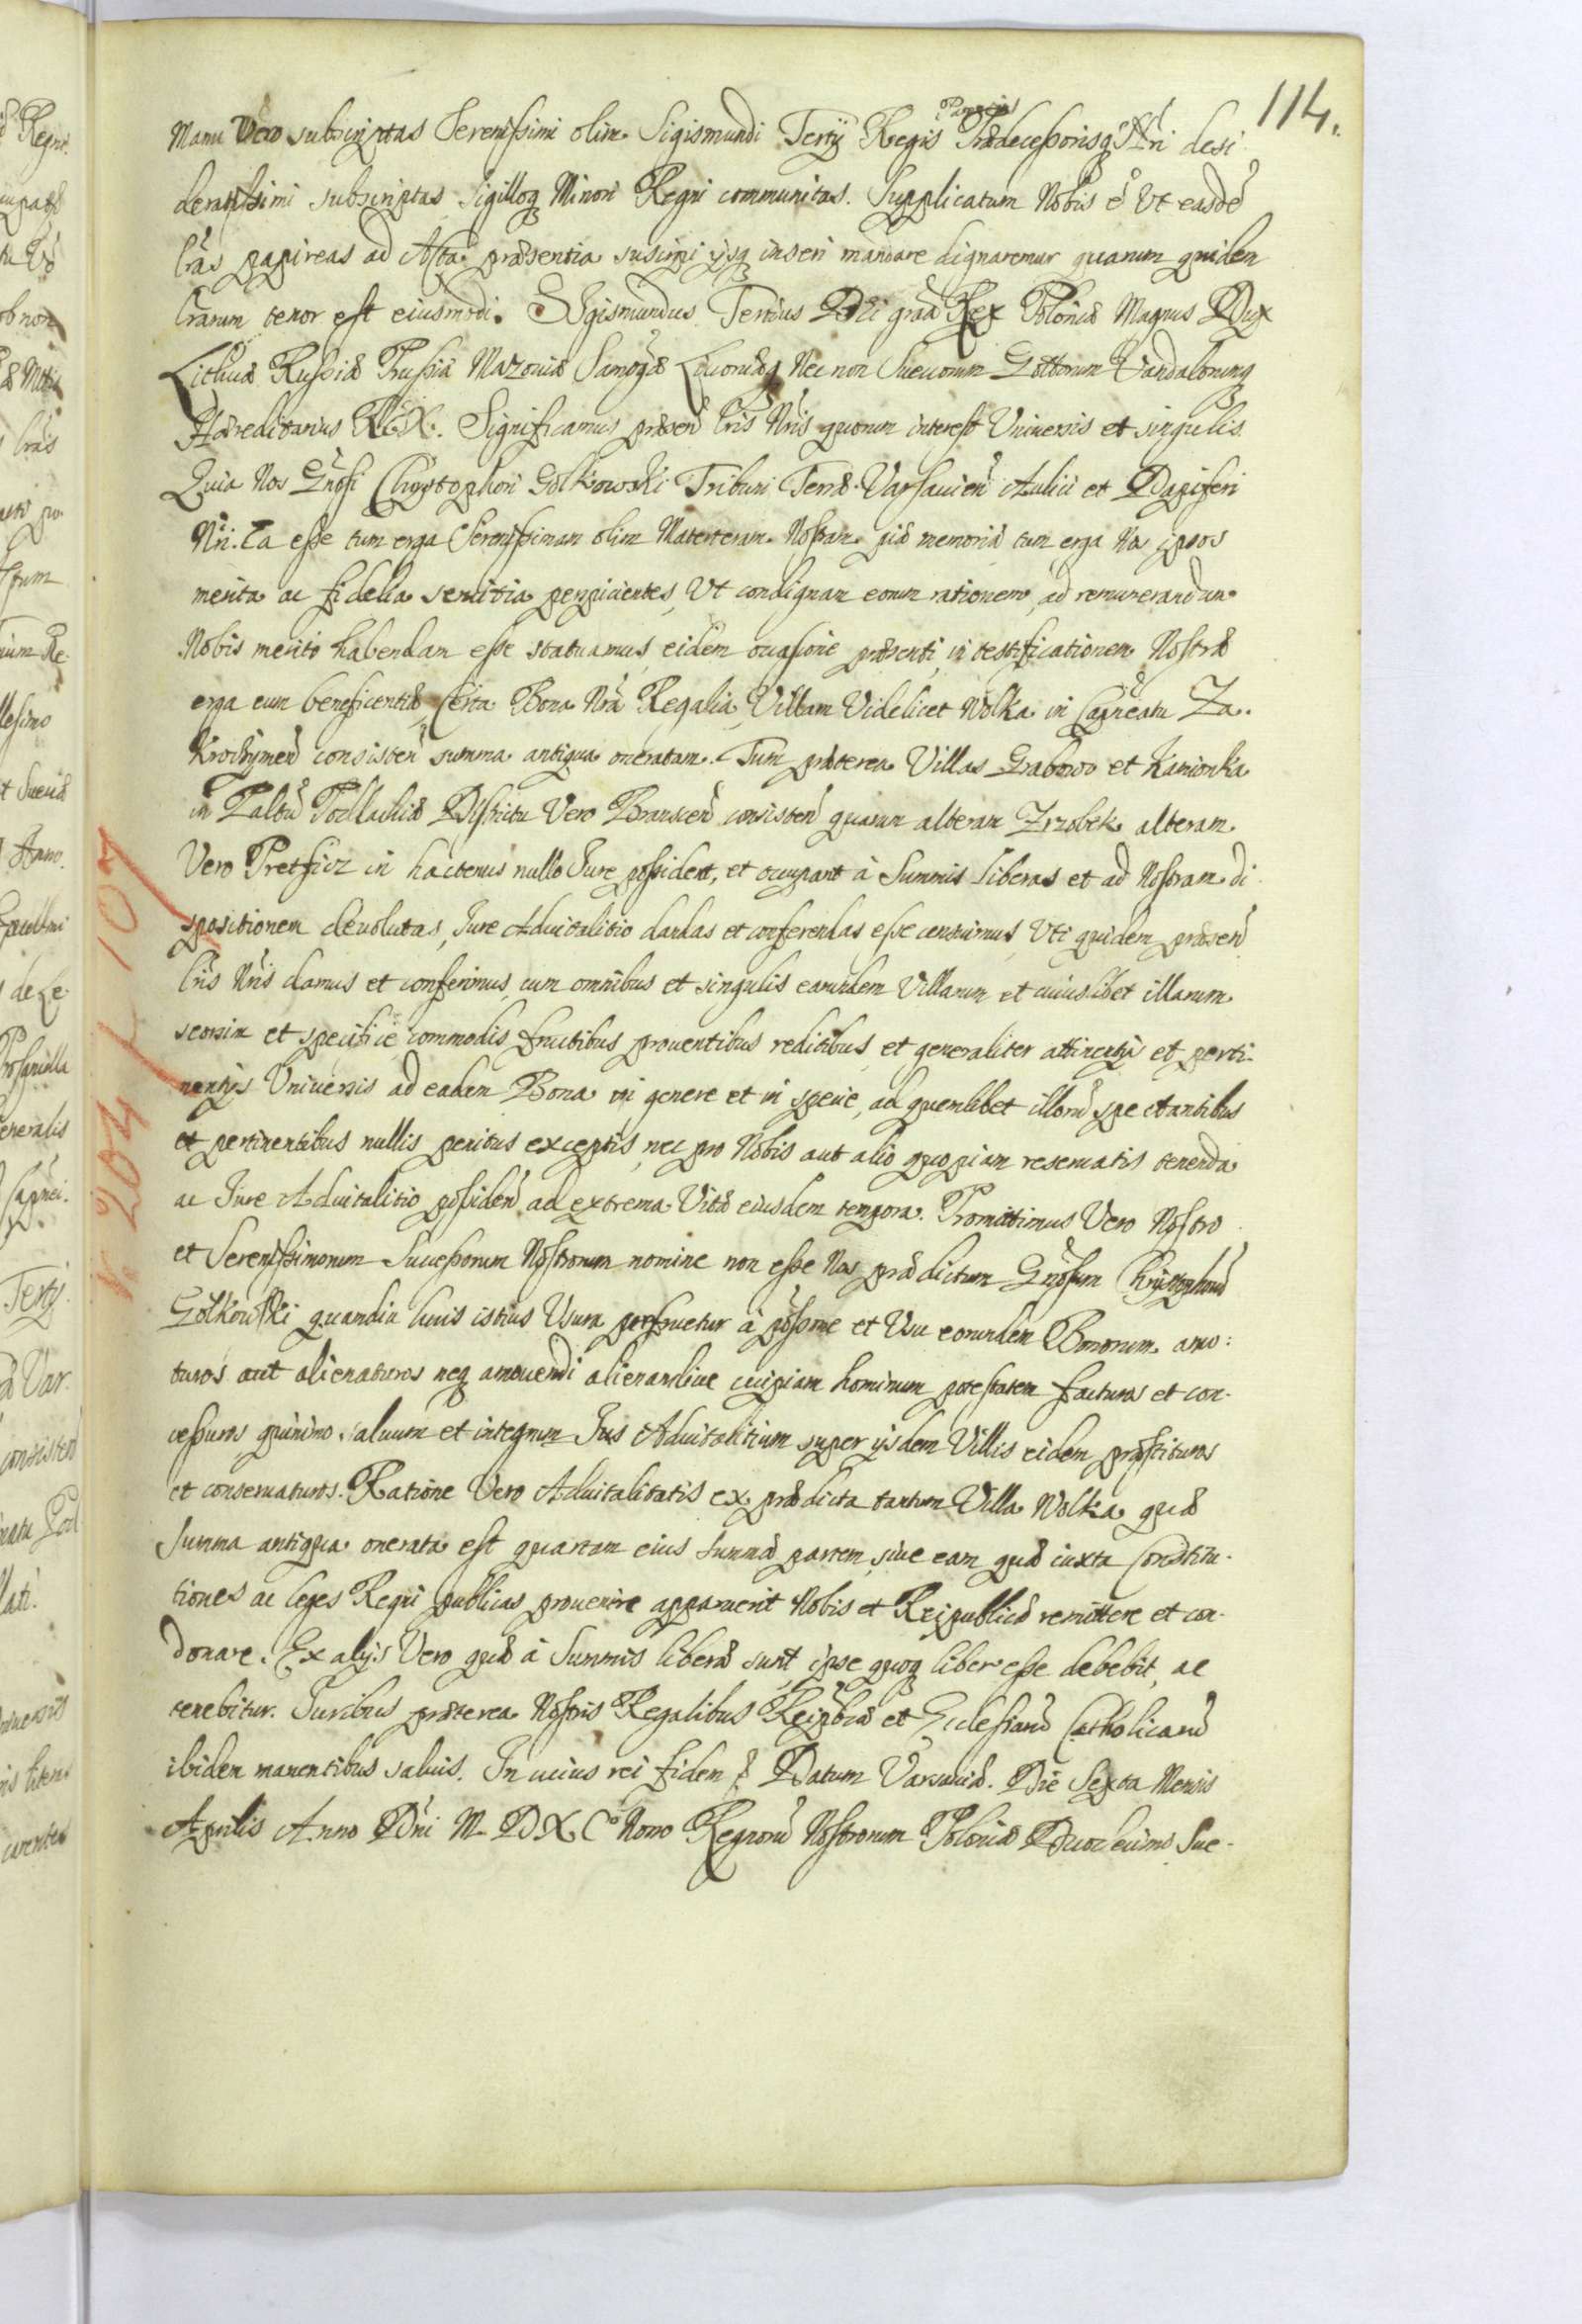 114.
Manu Vero subscriptas Serenissimi olim Sigismundi Tertij Regis Prædecessorisq Nri desi
deratissimi subscriptas Sigilloq Minori Regni communitas. Supplicatum Nobis e Ut easde
Lras papireas ad Acta præsentia suscipi ijsq inseri mandare dignaremur quarum quidem
Lrarum tenor est eiusmodi. Sigismundus Tertius Dei gra Rex Poloniæ Magnus Dux
Lithuæ Russiæ Prussiæ Mazouiæ Samogæ Liuoniæq Nec non Sueuorum Gottorum Vandalorumq
Hæreditarius REX. Significamus præsen Lris Nris quorum interest Uniuersis et singulis.
Quia Nos Gnosi Chrystophori Golkowski Tribuni Terræ Varsauien Aulici et Dapiferi
Nri. Ea esse tum erga Serenissimam olim Materteram Nostram piæ memoriæ tum erga Nos ipsos
merita ac fidelia seruitia perspicientes, Ut condignam eorum rationem ad remunerandum
Nobis merito habendam esse statuamus, eidem occasione præsenti in testificationem Nostræ
erga eum beneficentiæ, Certa Bona Nra Regalia, Villam Videlicet Wolka in Capneatu Za.
kroczymen consisten summa antiqua oneratam. Tum præterea Villas Grabowo et Kamionka
in Paltu Podlachiæ Districtu Vero Branscen consisten quarum alteram Zrzobek alteram
Vero Pretficz in hactenus nullo Jure possident, et occupant à Summis liberas et ad Nostram di
spositionem deuolutas, Jure Aduitalitio dandas et conferendas esse censuimus, Uti quidem præsen
Lris Nris damus et conferimus, cum omnibus et singulis earundem Villarum et cuiuslibet illarum
seorsim et specifice commodis fructibus prouentibus reditibus, et generaliter attinentijs et perti-
nentijs Uniuersis ad eadem Bona in genere et in specie, ad quemlibet illoru spectantibus
et pertinentibus nullis penitus exceptis, nec pro Nobis aut alio quopiam reseruatis tenenda
ac Jure Aduitalitio possiden ad extrema Vitæ eiusdem tempora. Promittimus Vero Nostro
et Serenissimorum Successorum Nostrorum nomine non esse Nos prædictum Gnosum Chrystophoru
Golkowski quamdiu lucis istius Usura perfruetur à possne et Usu eorundem Bonorum amo:
turos aut alienaturos neq amouendi alienandiue cuipiam hominum potestatem facturos et con-
cessuros quinimo saluum et integrum Jus Aduitalitium super ijsdem Villis eidem præstituros
et conseruaturos. Ratione Vero Aduitalitatis ex prædicta tantum Villa Wolka quæ
Summa antiqua onerata est quartam eius summæ partem, siue eam quæ iuxta Constitu-
tiones ac leges Regni publicas prouenire apparuerit Nobis et Reipublicæ remittere et con-
donare. Ex alijs Vero quæ à Summis liberæ sunt, ipse quoq liber esse debebit, ac
tenebitur. Juribus præterea Nostris Regalibus Reipbcæ et Ecclesiaru Catholicaru
ibidem manentibus saluis. In cuius rei fidem & Datum Varsauiæ. Die Sexta Mensis
Aprilis Anno Dni M. D. X. C° Nono Regnoru Nostrorum Poloniæ Duodecimo Sue-